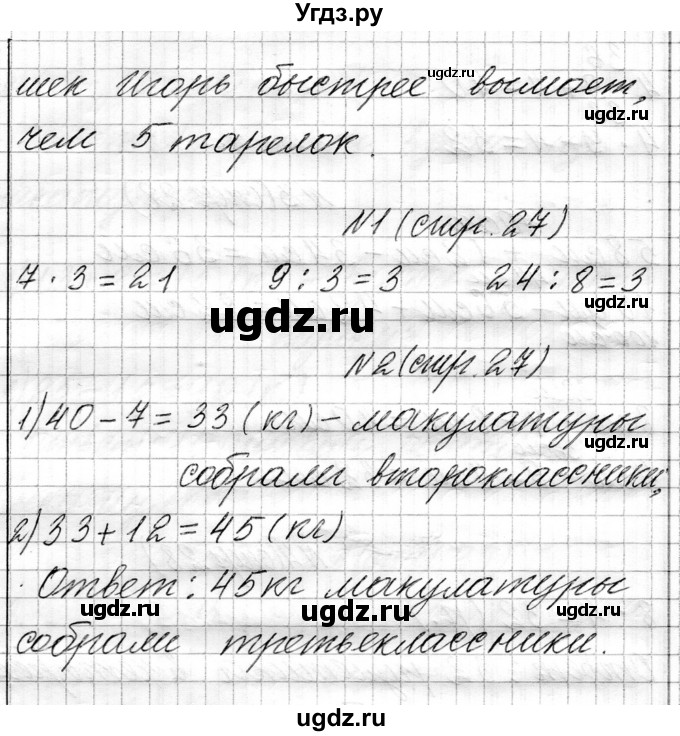 Угдз.ру
шек Игорь быстрее вымоет,
чем 5 тарелок.
N1 (стр. 27)
7 · 3 = 21 9 : 3 = 3 24 : 8 = 3
N2 (стр. 27)
1) 40 - 7 = 33 (кг) - макулатуры
собрали второклассники;
2) 33 + 12 = 45 (кг)
Ответ: 45 кг макулатуры
собрали третьеклассники.
ugdz.ru
ugdz.ru
ugdz.ru
ugdz.ru
ugdz.ru
ugdz.ru
ugdz.ru
ugdz.ru
ugdz.ru
ugdz.ru